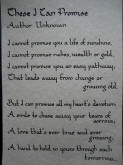 These I Can Promise
Author Unknown
I cannot promise you a life of sunshine,
I cannot promise riches, wealth or gold,
I cannot promise you an easy pathway,
That leads away from change or
growing old.
But I can promise all my heart's devotion
A smile to chase away your tears of
sorrow,
A love that's ever true and ever
growing,
A hand to hold in yours through each
tomorrow.